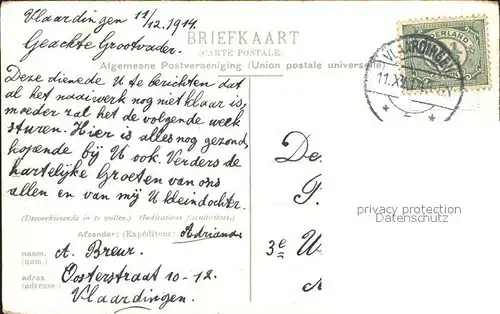 Vlaardingen 11/12.1914
Geachte Grootvader.
BRIEFKAART
(CARTE POSTALE)
Algemeene Postvereeniging (Union postale universelle)
NEDERLAND
VLAARDINGEN
11.XII
Deze dienede U te berichten dat
al het naaiwerk nog niet klaar is,
moeder zal het de volgende week
sturen. Hier is alles nog gezond,
hopende bij U ook. Verders de
hartelijke Groeten van ons
allen en van mij U kleindochter.
(Desverkiezende in te vullen.) (Indications facultatives.)
Afzender: (Expéditeur:) Adriana
naam. A. Breur.
(nom.)
adres Oosterstraat 10-12.
(adresse:) Vlaardingen.
De
3e
privacy protection
Datenschutz